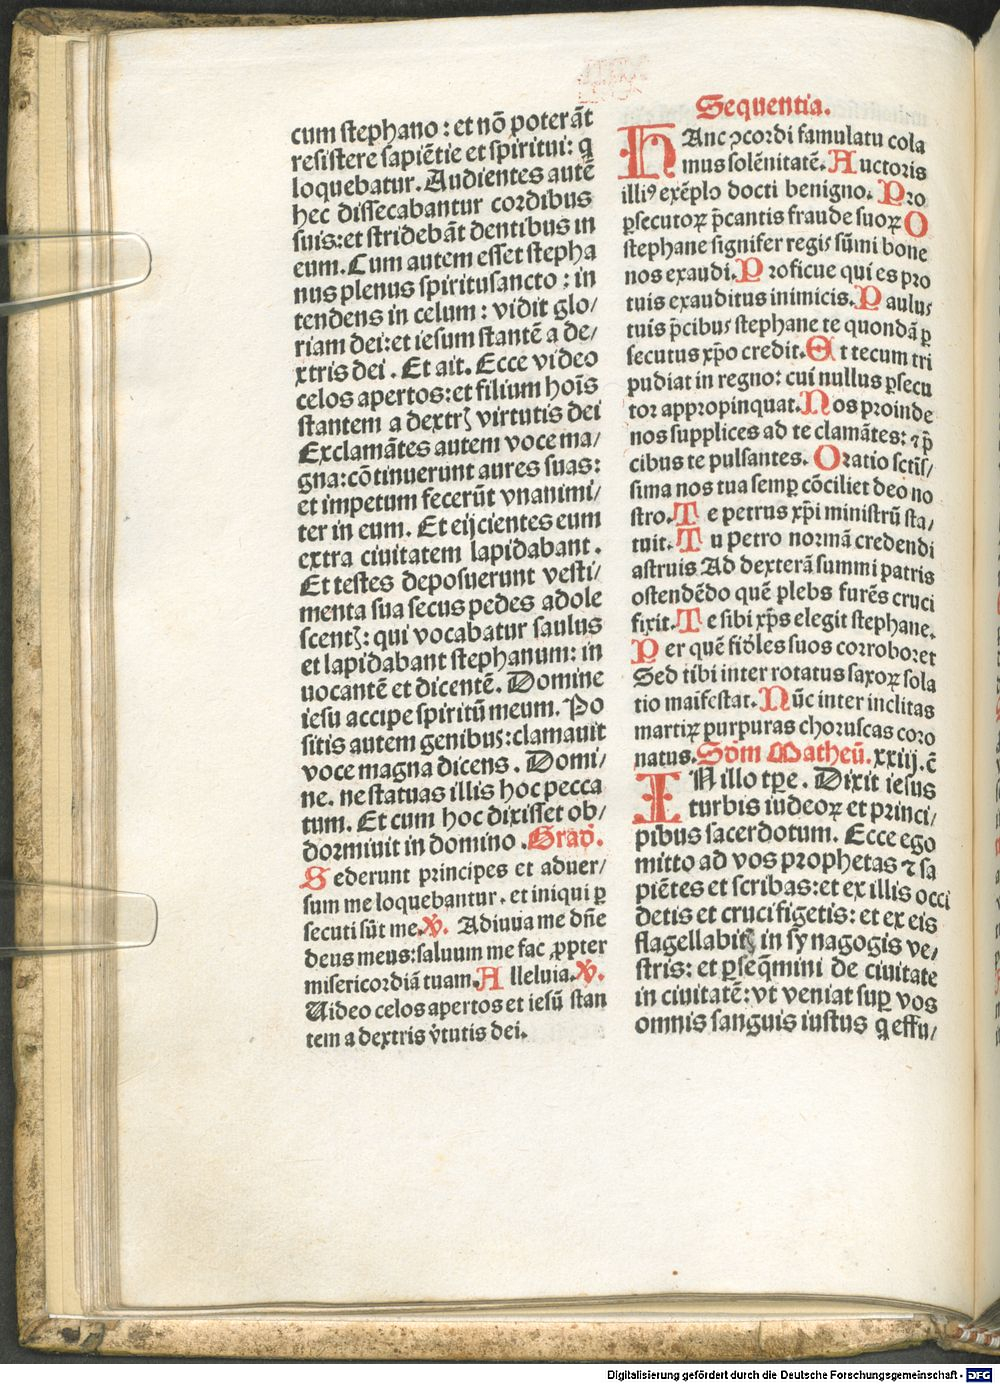 cum stephano : et nō poterāt
resistere sapiētie et spiritui: q̄
loquebatur. Audientes autē
hec dissecabantur cordibus
suis: et stridebāt dentibus in
eum. Cum autem esset stepha
nus plenus spiritusancto ; in
tendens in celum : vidit glo/
riam dei: et iesum stantē a de/
xtris dei . Et ait. Ecce video
celos apertos: et filium hoīs
stantem a dextrꝭ virtutis dei
Exclamātes autem voce ma/
gna: cōtinuerunt aures suas:
et impetum fecerūt vnanimi/
ter in eum. Et eijcientes eum
extra ciuitatem lapidabant.
Et testes deposuerunt vesti/
menta sua secus pedes adole
scentꝭ: qui vocabatur saulus
et lapidabant stephanum: in
uocantē et dicentē. Domine
iesu accipe spiritū meum. Po
sitis autem genibus: clamauit
voce magna dicens . Domi/
ne. ne statuas illis hoc pecca
tum. Et cum hoc dixisset ob/
dormiuit in domino . Grad̄.
Sederunt principes et aduer/
sum me loquebantur. et iniqui ꝑ
secuti sūt me. ꝟ. Adiuua me dn̄e
deus meus: saluum me fac ꝓpter
misericordiā tuam. Alleluia. ꝟ.
Uideo celos apertos et iesū stan
tem a dextris v̓tutis dei.
Sequentia.
HAnc ꝯcordi famulatu cola
mus solēnitatē. Auctoris
illiꝰ exēplo docti benigno. Pro
ꝑsecutoꝝ p̄cantis fraude suoꝝ O
stephane signifer regis sūmi bone
nos exaudi. Proficue qui es pro
tuis exauditus inimicis. Paulus
tuis p̄cibus stephane te quondā ꝑ
secutus xp̄o credit. Et tecum tri
pudiat in regno: cui nullus ꝑsecu
tor appropinquat. Nos proinde
nos supplices ad te clamātes: ⁊ p̄
cibus te pulsantes. Oratio sctīs/
sima nos tua semꝑ cōciliet deo no
stro. Te petrus xp̄i ministrū sta/
tuit. Tu petro normā credendi
astruis Ad dexterā summi patris
ostendēdo quē plebs furēs cruci
fixit. Te sibi xp̄s elegit stephane.
Per quē fiđles suos corroboret
Sed tibi inter rotatus saxoꝝ sola
tio maifestat. Nūc inter inclitas
martiꝝ purpuras choruscas coro
natus. Scd̄m Matheū. xxiij. c̄
IN illo tꝑe . Dixit iesus
turbis iudeoꝝ et princi/
pibus sacerdotum. Ecce ego
mitto ad vos prophetas ⁊ sa
piētes et scribas: et ex illis occi
detis et crucifigetis: et ex eis
flagellabitꝭ in synagogis ve/
stris: et ꝑseq̄mini de ciuitate
in ciuitatē: vt veniat suꝑ vos
omnis sanguis iustus q̄ effu/
Digitalisierung gefördert durch die Deutsche Forschungsgemeinschaft - DFG